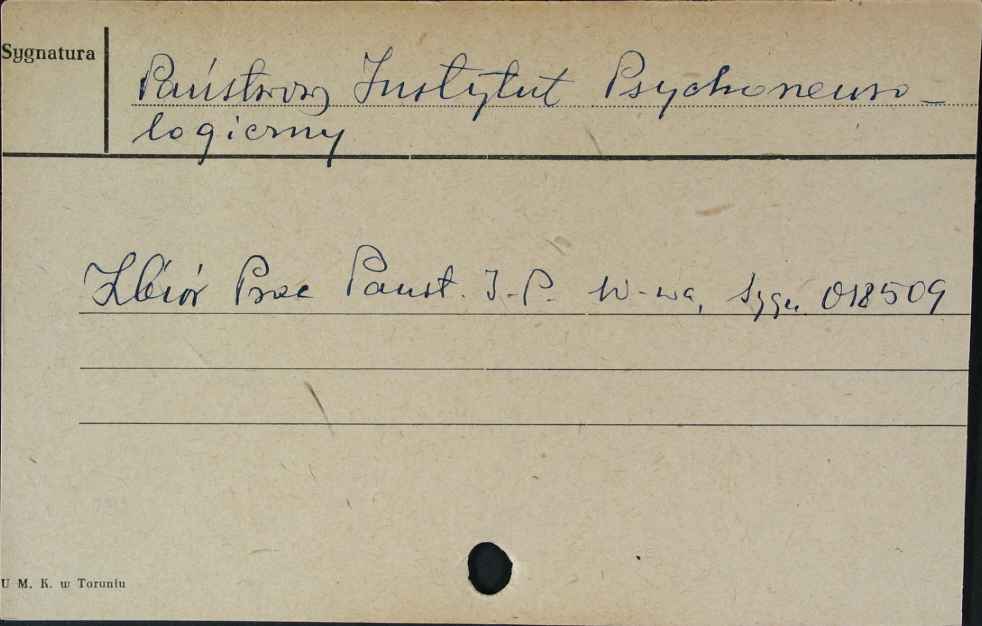 Sygnatura
Państwowy Instytut Psychoneuro-
logiczny
Zbiór Prac Państ. I.P. W-wa, Sygn. 018509
U M. K. w Toruniu